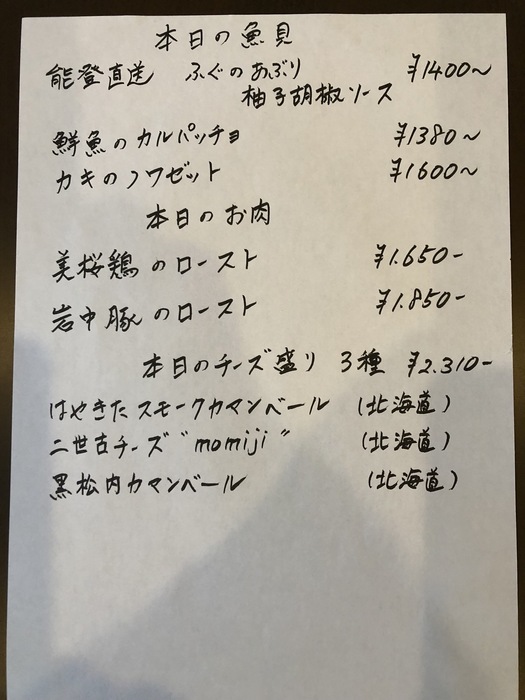 本日の魚貝
能登直送 ふぐのあぶり ¥1400〜
柚子胡椒ソース
鮮魚のカルパッチョ ¥1380〜
カキのノワゼット ¥1600〜
本日のお肉
美桜鶏のロースト ¥1.650-
岩中豚のロースト ¥1.850-
本日のチーズ盛り 3種 ¥2.310-
はやきたスモークカマンベール (北海道)
二世古チーズ "momiji" (北海道)
黒松内カマンベール (北海道)